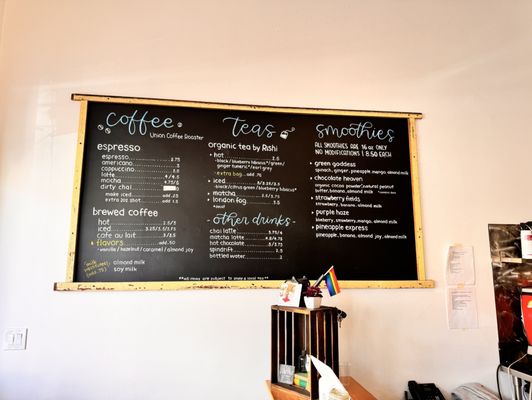 coffee
Union Coffee Roaster
espresso
espresso 2.75
americano 3
cappuccino 3.5
latte 4/4.5
mocha 4.75/5
dirty chai
make iced
extra 2oz shot add 1.5
brewed coffee
hot 2.5/3
iced 3.25/3.5/3.75
cafe au lait 3/3.5
flavors add .50
vanilla/hazelnut/caramel/almond
almond milk
soy milk
Teas
organic tea by Rishi
hot 2.5
-black/blueberry hibiscus*/green/
ginger tumeric*/earl grey
-extra bag add .75
iced
-black/citrus green/blueberry hibiscus*
matcha
london fog
*decaf
-other drinks-
chai latte 3.75/4
matcha latte
hot chocolate 3/3.75
spindrift 2.5
bottled water 2
**all milks are subject to make a latte**
smoothies
ALL SMOOTHIES ARE 16oz ONLY
NO MODIFICATIONS | 8.50 EACH
green goddess
spinach, ginger, pineapple, mango, almond milk
chocolate heaven
organic cocoa powder, natural peanut
butter, banana, almond milk
strawberry fields
strawberry, banana, almond milk
purple haze
blueberry, strawberry, mango, almond milk
pineapple express
pineapple, banana, almond joy, almond milk